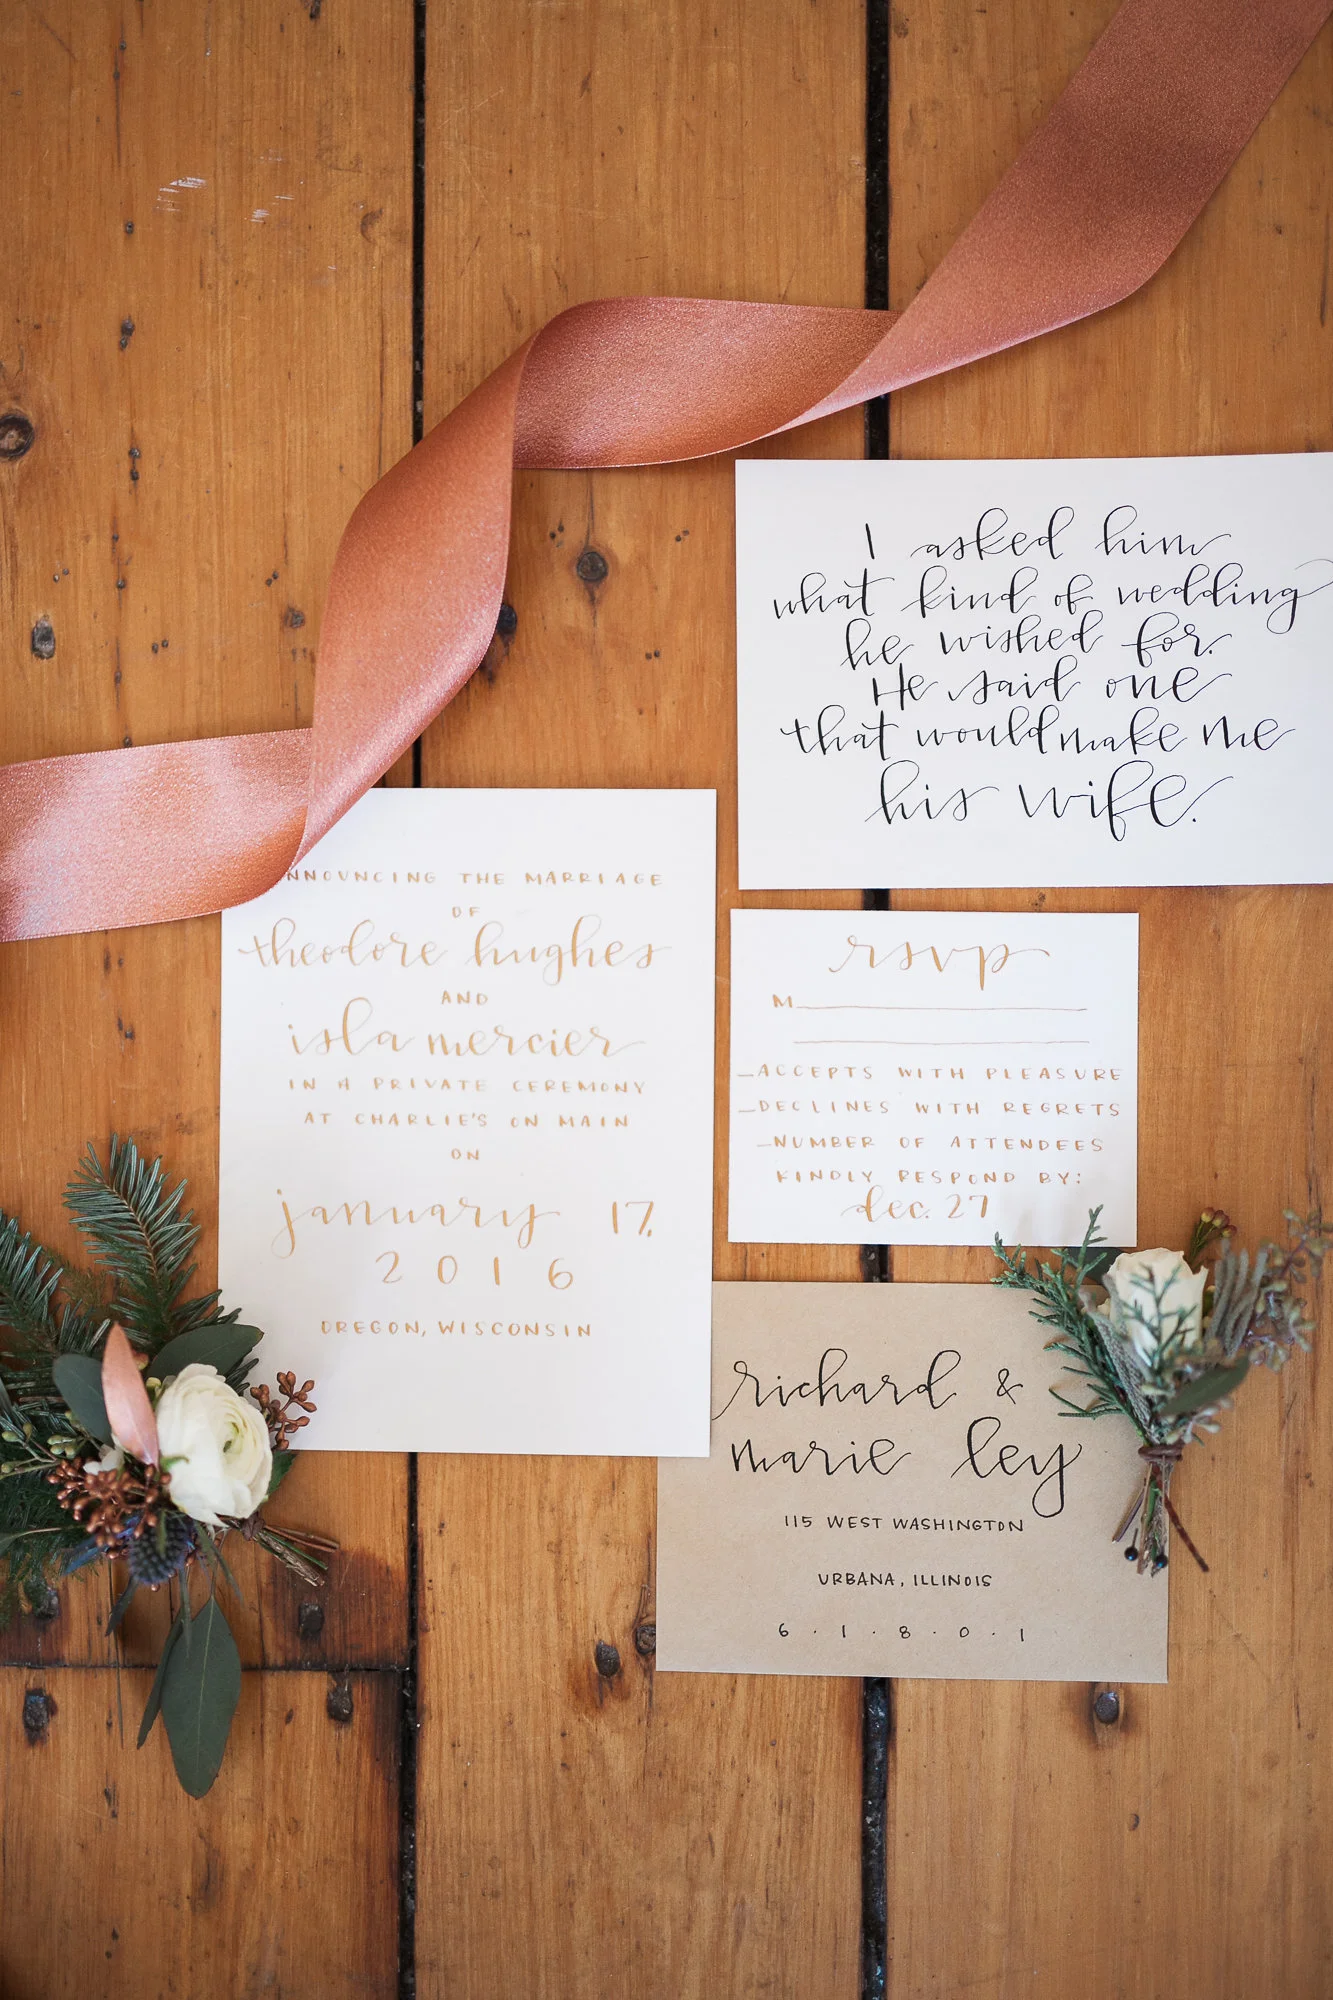 I asked him
what kind of wedding
he wished for.
He said one
that would make me
his wife.
NNOUNCING THE MARRIAGE
OF
theodore hughes
AND
isla mercier
IN A PRIVATE CEREMONY
AT CHARLIE'S ON MAIN
ON
january 17,
2016
OREGON, WISCONSIN
rsvp
M
_ACCEPTS WITH PLEASURE
_DECLINES WITH REGRETS
_NUMBER OF ATTENDEES
KINDLY RESPOND BY:
dec. 27
richard &
marie ley
115 WEST WASHINGTON
URBANA, ILLINOIS
6 · 1 · 8 · 0 · 1